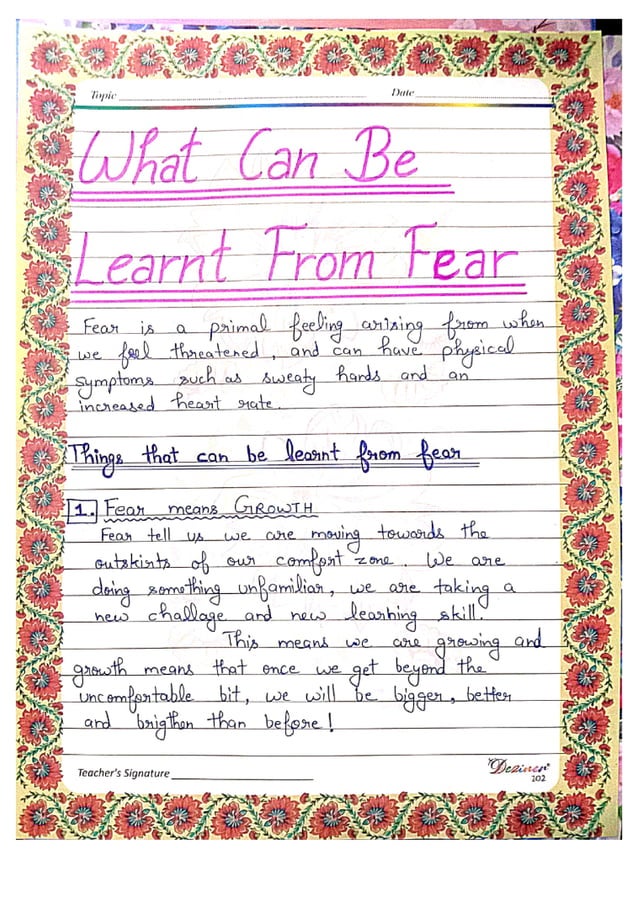 Topic
Date
What Can Be
Learnt From Fear
Fear is a primal feeling arising from when
we feel threatened, and can have physical
symptoms such as sweaty hands and an
increased heart rate.
Things that can be learnt from fear
1. Fear means GROWTH
Fear tell us we are moving towards the
outskirts of our comfort zone. We are
doing something unfamiliar, we are taking a
new challage and new learning skill.
This means we are growing and
growth means that once we get beyond the
uncomfortable bit, we will be bigger, better
and brigthen than before!
Teacher's Signature
Deziner
102